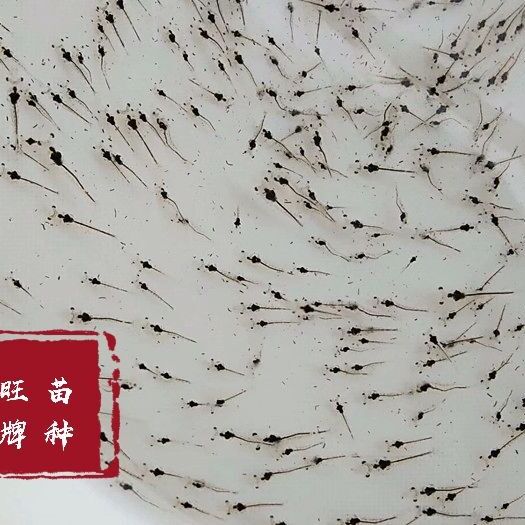 旺牌
苗种